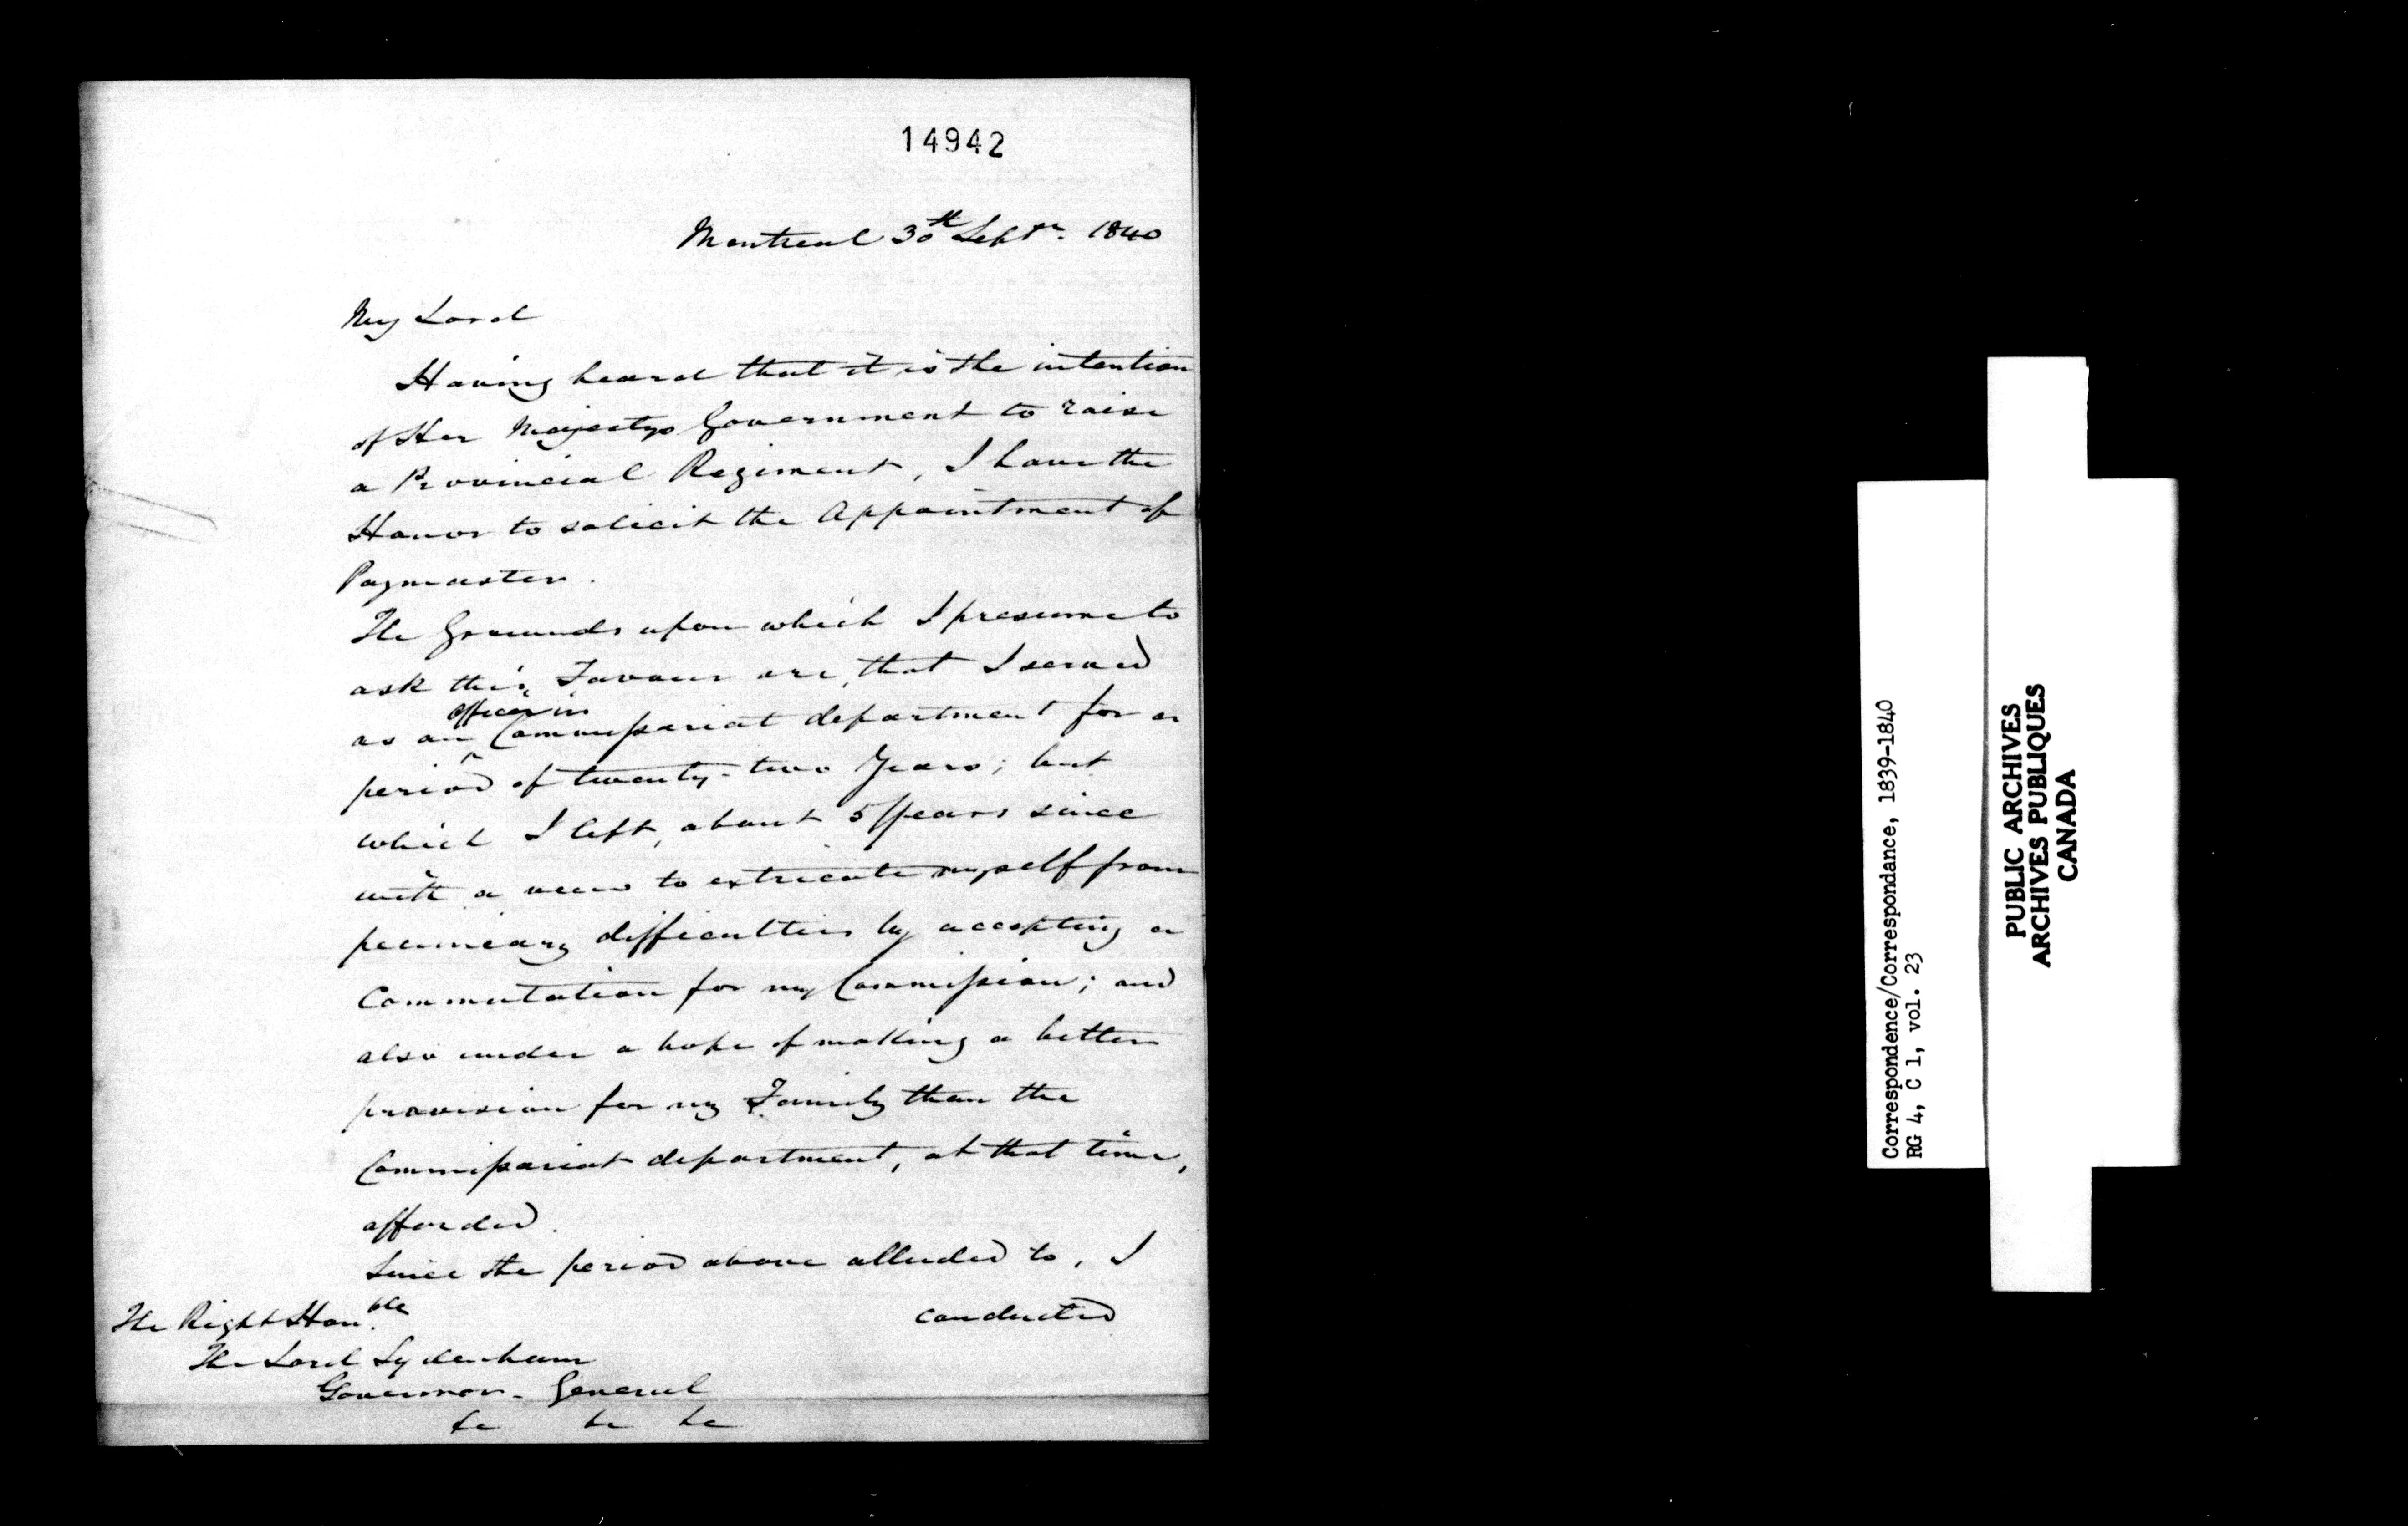 14942
Montreal 30th Septr. 1840
My Lord
Having heard that it is the intention
of Her Majestys Government to raise
a Provincial Regiment, I have the
Honor to solicit the Appointment of
Paymaster.
The Grounds upon which I presume to
ask this Favour are, that I served
officer in
as an ^ Commissariat department for a
period of twenty-two Years; but
which I left, about 5 years since
with a view to extricate myself from
pecuniary difficulties by accepting a
Commutation for my Commission; and
also under a hope of making a better
provision for my Family than the
Commissariat department, at that time,
afforded.
Since the period above alluded to, I
conducted
The Right Honble.
The Lord Sydenham
Governor-General
&c &c &c
Correspondence/Correspondance, 1839-1840
RG 4, C 1, vol. 23
PUBLIC ARCHIVES
ARCHIVES PUBLIQUES
CANADA